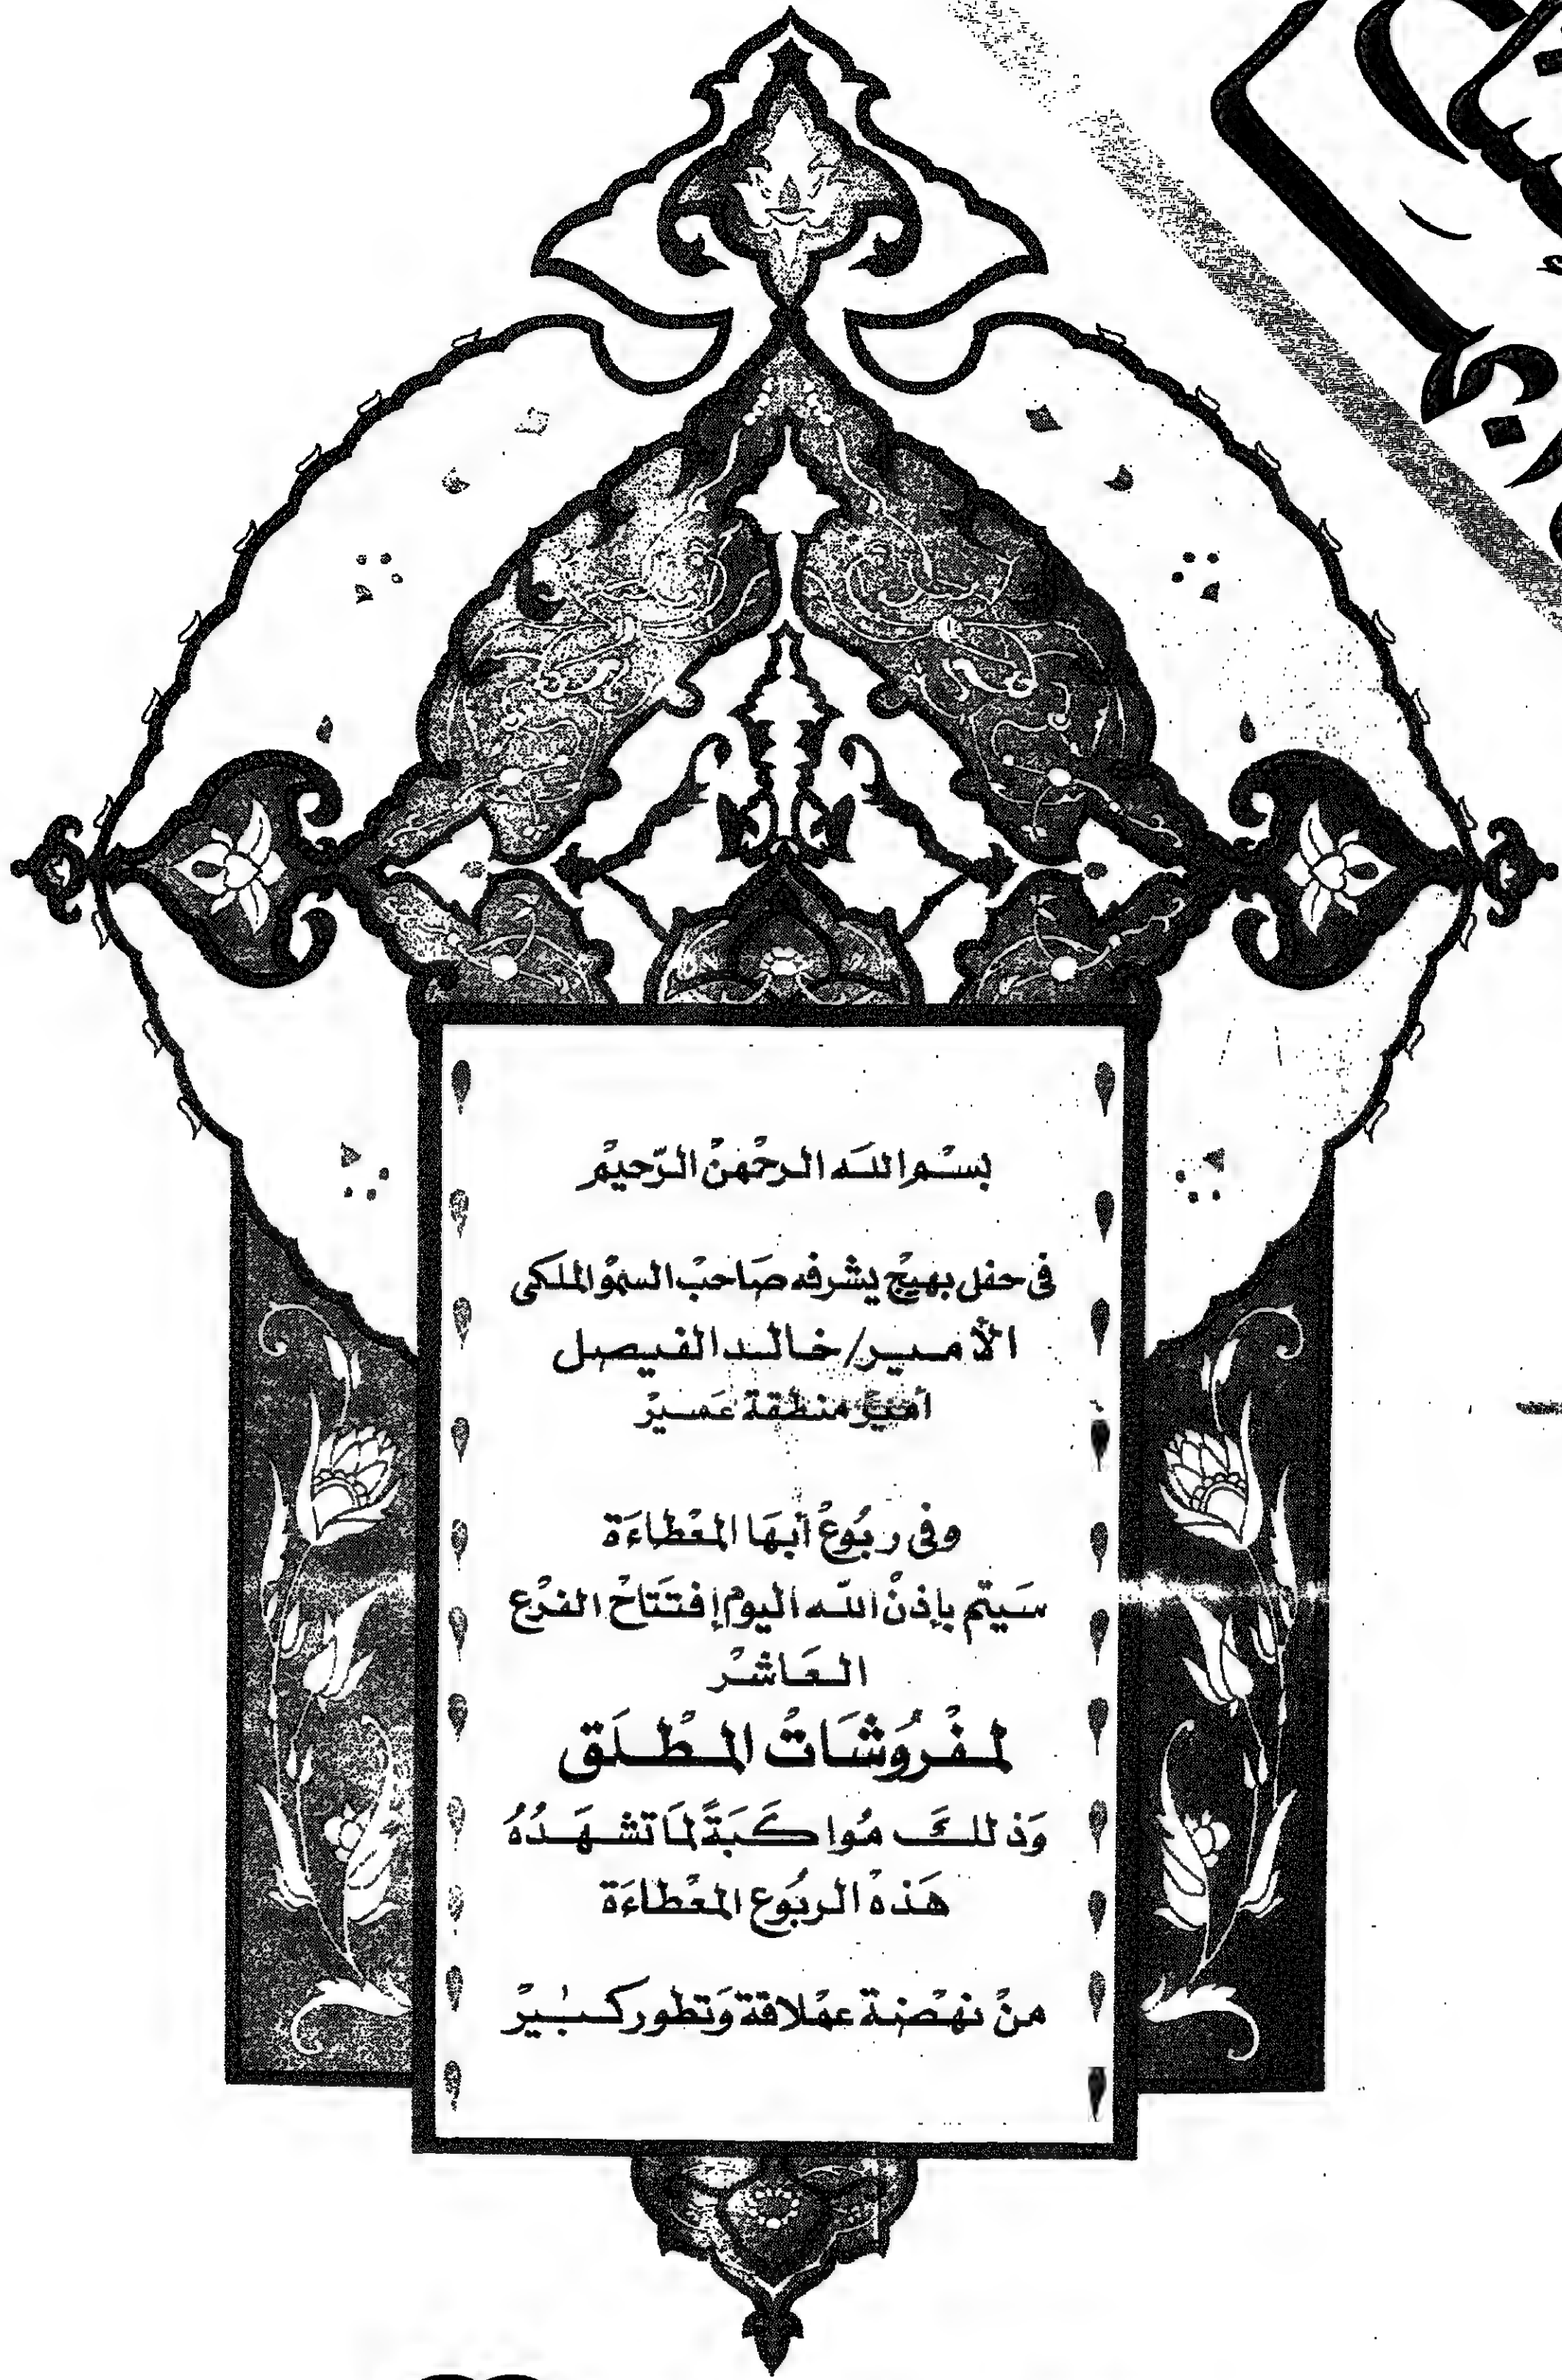 بسْم الله الرحْمنْ الرّحيمْ
فى حفل بهيْج يشرفه صَاحبْ السموْ الملكى
الأمير/خالد الفيصل
أميْر منطقة عَسيرْ
وفى ربُوعْ أبهَا المعْطاءَة
سَيتم بإذنْ الله اليوم إفتتَاحْ الفرْع
العَاشرْ
لمفْرُوشَاتْ المطْلَق
وَذلكَ مُواكَبَةً لمَا تشهَدُهُ
هَذهْ الربُوع المعْطاءَة
منْ نهْضة عمْلاقة وَتطور كبيرْ